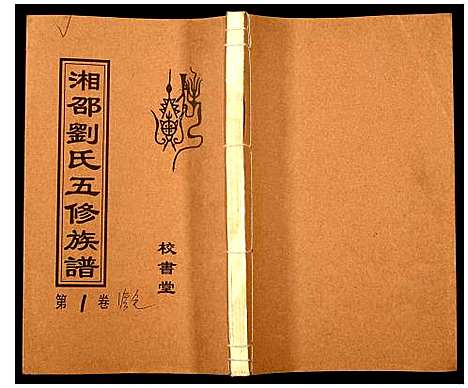 湘邵劉氏五修族譜
第1卷
校書堂